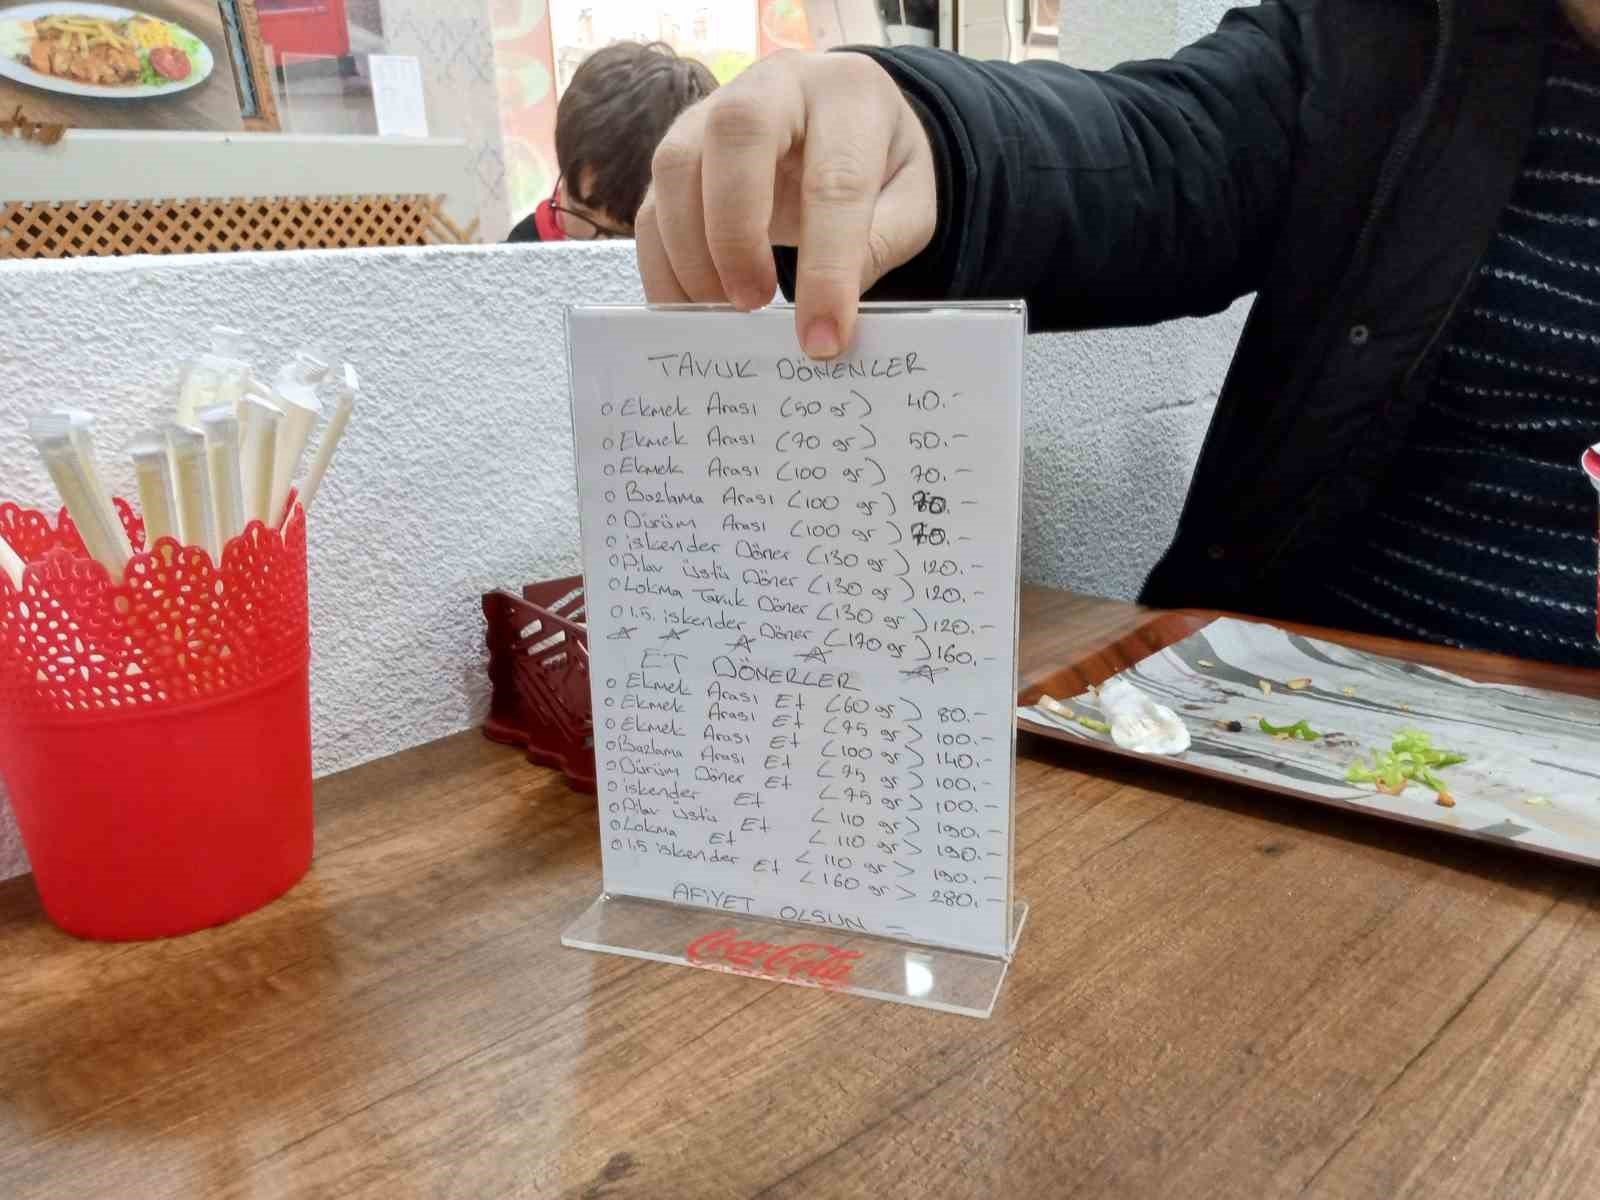 TAVUK DÖNENLER
o Ekmek Arası (50 gr) 40.-
o Ekmek Arası (70 gr) 50.-
o Ekmek Arası (100 gr) 70.-
o Bazlama Arası (100 gr) 70.-
o Dürüm Arası (100 gr) 70.-
o iskender Döner (130 gr) 120.-
o Pilav üstü Döner (130 gr) 120.-
o Lokma Tavuk Döner (130 gr) 120.-
o 1.5. iskender Döner (170 gr) 160.-
ET DÖNERLER
o Ekmek Arası Et (60 gr) 80.-
o Ekmek Arası Et (75 gr) 100.-
o Ekmek Arası Et (100 gr) 140.-
o Bazlama Arası Et (75 gr) 100.-
o Dürüm Döner Et (75 gr) 100.-
o iskender Et (110 gr) 190.-
o Pilav üstü Et (110 gr) 190.-
o Lokma Et (110 gr) 190.-
o 1.5 iskender Et (160 gr) 280.-
AFİYET OLSUN
Coca-Cola